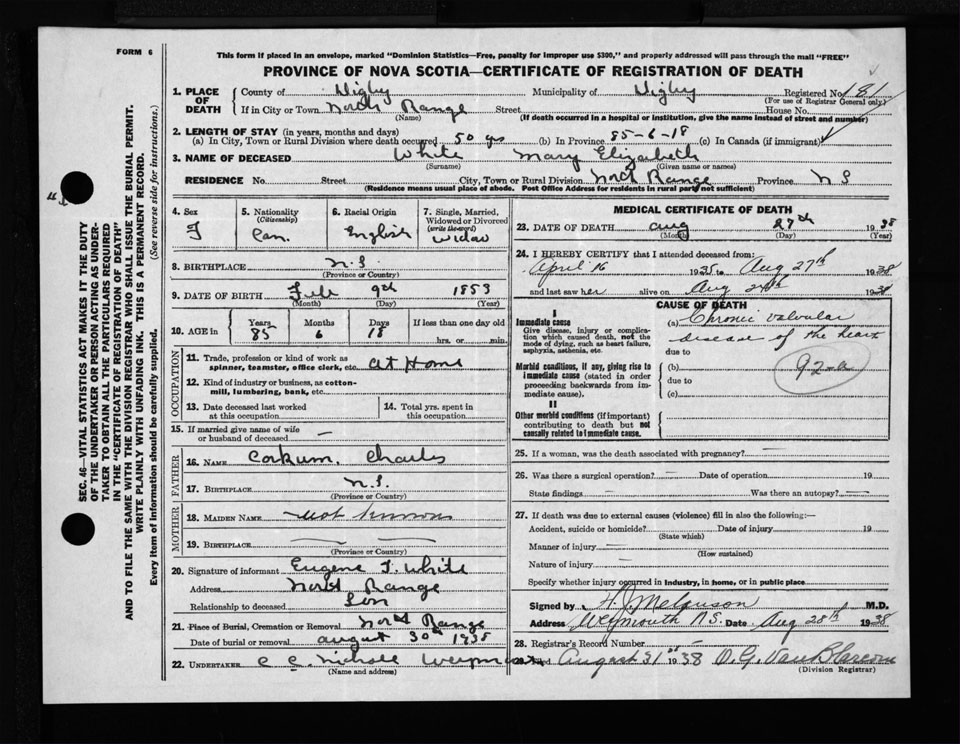 FORM 6
This form if placed in an envelope, marked "Dominion Statistics—Free, penalty for improper use $300," and properly addressed will pass through the mail "FREE"
PROVINCE OF NOVA SCOTIA—CERTIFICATE OF REGISTRATION OF DEATH
1. PLACE OF DEATH
County of Digby Municipality of Digby Registered No. 181
(For use of Registrar General only)
If in City or Town North Range Street House No.
(Name) (If death occurred in a hospital or institution, give the name instead of street and number)
2. LENGTH OF STAY (in years, months and days)
(a) In City, Town or Rural Division where death occurred 50 yrs (b) In Province 85-6-18 (c) In Canada (if immigrant)
3. NAME OF DECEASED White Mary Elizabeth
(Surname) (Given name or names)
RESIDENCE No. Street City, Town or Rural Division North Range Province N S
(Residence means usual place of abode. Post Office Address for residents in rural parts not sufficient)
4. Sex
F
5. Nationality
(Citizenship)
Can.
6. Racial Origin
English
7. Single, Married, Widowed or Divorced
(write the word)
Widow
8. BIRTHPLACE N.S.
(Province or Country)
9. DATE OF BIRTH Feb 9th 1853
(Month) (Day) (Year)
10. AGE in
Years Months Days If less than one day old
85 6 18 hrs. or min.
OCCUPATION
11. Trade, profession or kind of work as spinner, teamster, office clerk, etc. At Home
12. Kind of industry or business, as cotton-mill, lumbering, bank, etc.
13. Date deceased last worked at this occupation
14. Total yrs. spent in this occupation
15. If married give name of wife or husband of deceased —
FATHER
16. NAME Corkum, Charles
17. BIRTHPLACE N.S.
(Province or Country)
MOTHER
18. MAIDEN NAME not known
19. BIRTHPLACE — —
(Province or Country)
20. Signature of informant Eugene F. White
Address North Range
Relationship to deceased Son
21. Place of Burial, Cremation or Removal North Range
Date of burial or removal August 30th 1938
22. UNDERTAKER C C. Nichols Weymouth
(Name and address)
MEDICAL CERTIFICATE OF DEATH
23. DATE OF DEATH Aug 27th 1938
(Month) (Day) (Year)
24. I HEREBY CERTIFY that I attended deceased from:
April 16 1935 to Aug 27th 1938
and last saw her alive on Aug 24th 1938
CAUSE OF DEATH
I
Immediate cause
Give disease, injury or complication which caused death, not the mode of dying, such as heart failure, asphyxia, asthenia, etc.
(a) Chronic valvular
disease of the heart
due to
Morbid conditions, if any, giving rise to immediate cause (stated in order proceeding backwards from immediate cause).
(b)
due to
(c)
92-a
II
Other morbid conditions (if important) contributing to death but not causally related to immediate cause.
25. If a woman, was the death associated with pregnancy? —
26. Was there a surgical operation? — Date of operation 19
State findings — Was there an autopsy? —
27. If death was due to external causes (violence) fill in also the following:—
Accident, suicide or homicide? Date of injury 19
(State which)
Manner of injury —
(How sustained)
Nature of injury —
Specify whether injury occurred in industry, in home, or in public place
Signed by M.D.
Address Weymouth N.S. Date Aug 28th 1938
28. Registrar's Record Number —
Filed August 31st 1938 O. G. Van Blarcom
(Division Registrar)
SEC. 46—VITAL STATISTICS ACT MAKES IT THE DUTY
OF THE UNDERTAKER OR PERSON ACTING AS UNDER-
TAKER TO OBTAIN ALL THE PARTICULARS REQUIRED
IN THE "CERTIFICATE OF REGISTRATION OF DEATH"
AND TO FILE THE SAME WITH THE DIVISION REGISTRAR WHO SHALL ISSUE THE BURIAL PERMIT.
WRITE PLAINLY WITH UNFADING INK. THIS IS A PERMANENT RECORD.
Every item of information should be carefully supplied. (See reverse side for instructions.)